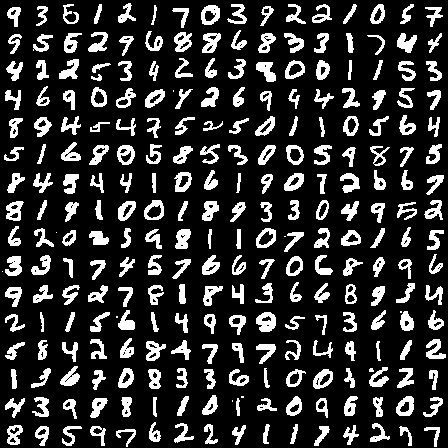 9 3 5 1 2 1 7 0 3 9 2 2 1 0 5 7
9 5 5 2 9 6 8 8 6 8 3 3 1 7 4 4
4 2 2 5 3 9 2 6 3 9 0 0 1 1 5 3
4 6 9 0 8 0 4 2 6 9 9 4 2 9 5 7
8 9 4 5 4 7 5 2 5 0 1 1 0 5 6 4
5 1 6 8 0 5 8 5 3 0 0 5 9 8 7 5
8 4 5 4 4 1 0 6 1 9 0 7 2 6 6 7
8 1 4 1 0 0 1 8 9 3 3 0 4 9 5 2
6 2 0 2 5 9 8 1 1 0 7 2 0 1 6 5
3 3 7 7 4 5 7 6 6 7 0 6 8 9 9 6
9 2 9 2 7 8 1 8 4 3 6 6 8 9 3 4
2 1 1 5 6 1 4 9 9 0 5 7 3 6 0 6
5 8 4 2 6 8 4 7 9 7 2 4 9 1 1 2
1 3 6 7 0 8 3 3 6 1 0 0 2 6 2 7
4 3 9 8 8 1 1 0 1 2 0 9 6 8 0 3
8 9 5 9 7 6 2 2 4 1 1 7 4 2 7 7